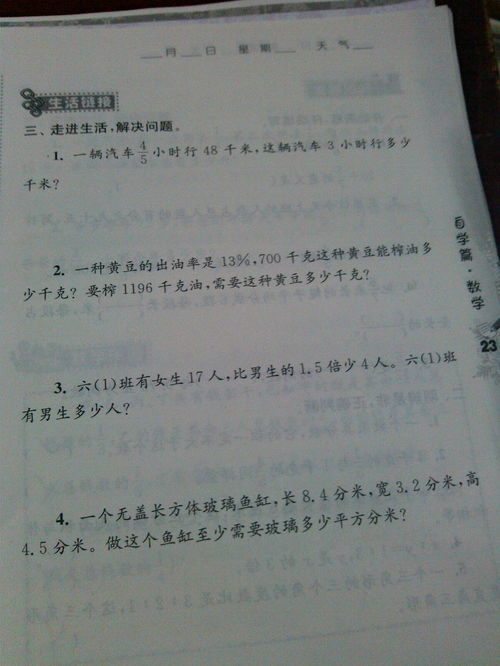 ___月___日 星期___ 天气___
生活链接
三、走进生活,解决问题。
1. 一辆汽车4/5小时行48千米,这辆汽车3小时行多少
千米?
2. 一种黄豆的出油率是13%,700千克这种黄豆能榨油多
少千克? 要榨1196千克油,需要这种黄豆多少千克?
3. 六(1)班有女生17人,比男生的1.5倍少4人。六(1)班
有男生多少人?
4. 一个无盖长方体玻璃鱼缸,长8.4分米,宽3.2分米,高
4.5分米。做这个鱼缸至少需要玻璃多少平方分米?
自学篇·数学
23